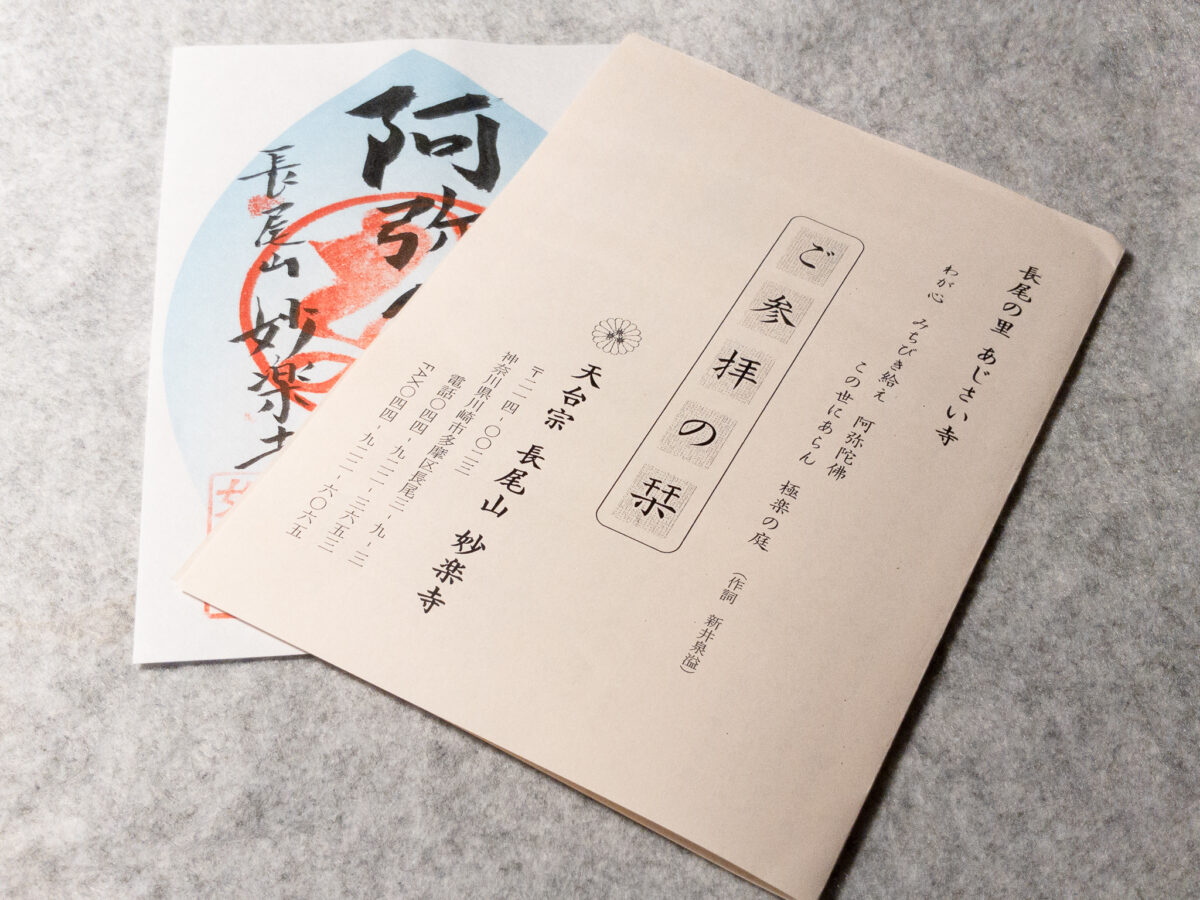 長尾の里 あじさい寺
わが心 みちびき給え 阿弥陀佛
この世にあらん 極楽の庭
(作詞 新井泉溢)
ご参拝の栞
天台宗 長尾山 妙楽寺
〒二一四-〇〇二三
神奈川県川崎市多摩区長尾三-九-三
電話〇四四-九二二-三六五三
FAX〇四四-九二二-六〇六五
阿弥
長尾山 妙楽寺